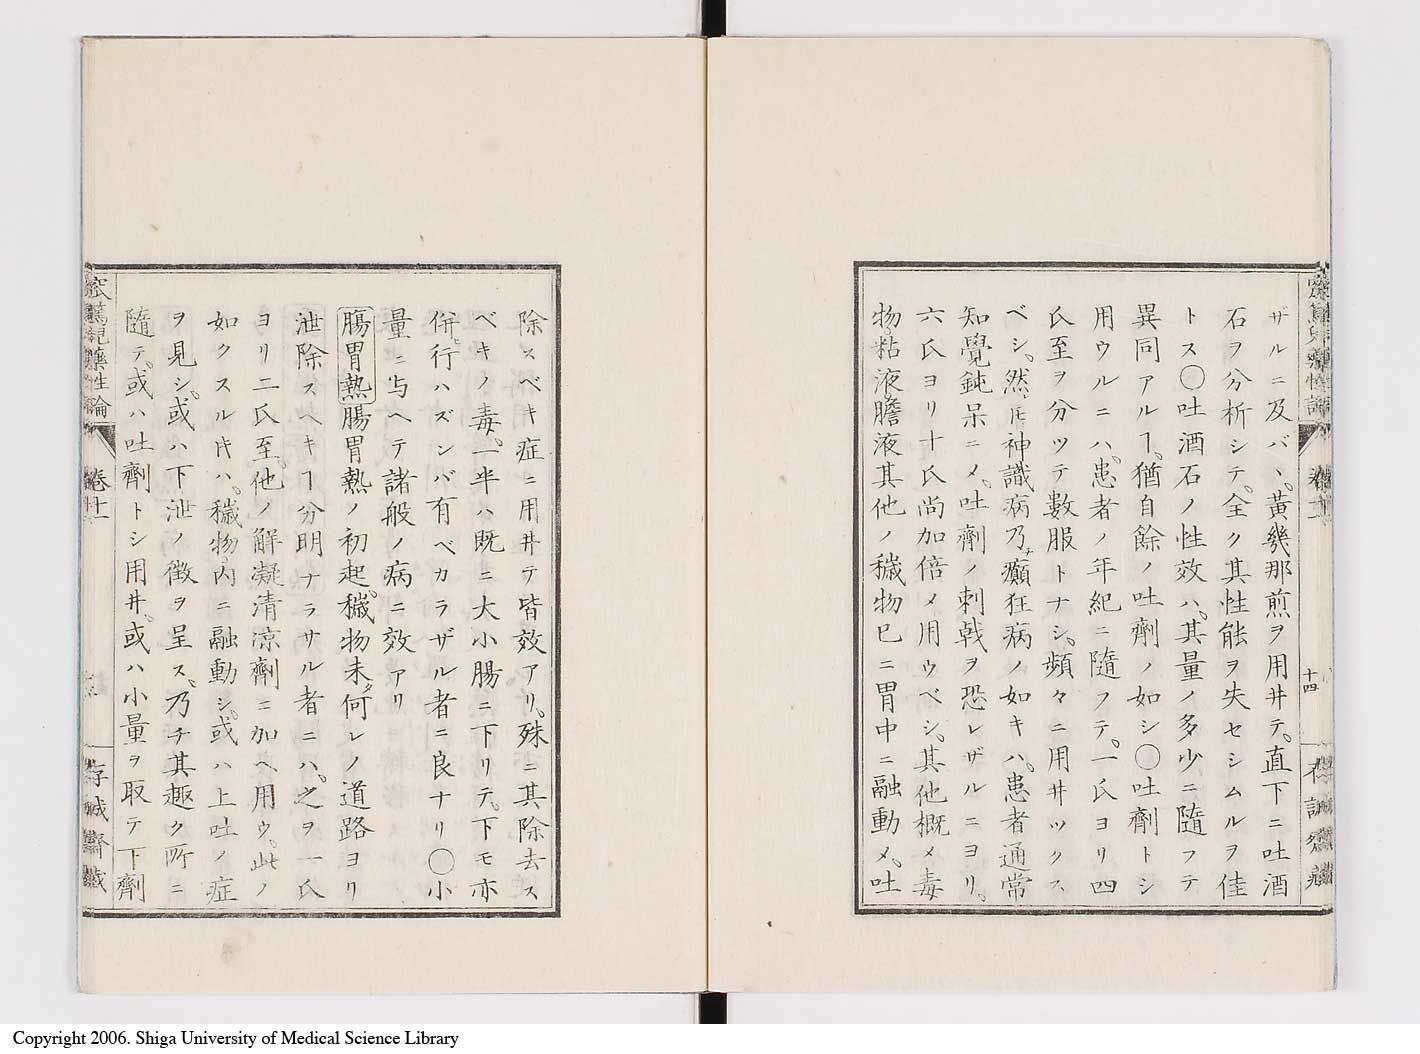 ザルニ及バヽ、黄幾那煎ヲ用井テ、直下ニ吐酒
石ヲ分析シテ、全ク其性能ヲ失セシムルヲ佳
トス〇吐酒石ノ性效ハ、其量ノ多少ニ隨フテ
異同アルヿ、猶自餘ノ吐劑ノ如シ〇吐劑トシ
用ウルニハ、患者ノ年紀ニ隨フテ、一氏ヨリ四
氏至ヲ分ツテ數服トナシ、頻々ニ用井ツクス
ベシ、然𪜈神識病乃チ癲狂病ノ如キハ、患者通常
知覺鈍呆ニメ、吐劑ノ刺戟ヲ恐レザルニヨリ、
六氏ヨリ十氏尚加倍メ用ウベシ、其他概メ毒
物、粘液膽液其他ノ穢物已ニ胃中ニ融動メ、吐
十四
除スベキ症ニ用井テ皆效アリ、殊ニ其除去ス
ベキノ毒、一半ハ既ニ大小腸ニ下リテ、下モ亦
倂ヒ行ハズンバ有ベカラザル者ニ良ナリ〇小
量ニ与ヘテ諸般ノ病ニ效アリ
腸胃熱腸胃熱ノ初起、穢物未タ何レノ道路ヨリ
泄除スヘキヿ分明ナラサル者ニハ、之ヲ一氏
ヨリ二氏至、他ノ解凝清凉劑ニ加ヘ用ウ、此ノ
如クスル𪜈ハ、穢物内ニ融動シ、或ハ上吐ノ症
ヲ見シ、或ハ下泄ノ徴ヲ呈ス、乃チ其趣ク所ニ
隨テ、或ハ吐劑トシ用井、或ハ小量ヲ取テ下劑
窊篤児藥性論
卷十一
存誠齋藏
Copyright 2006. Shiga University of Medical Science Library